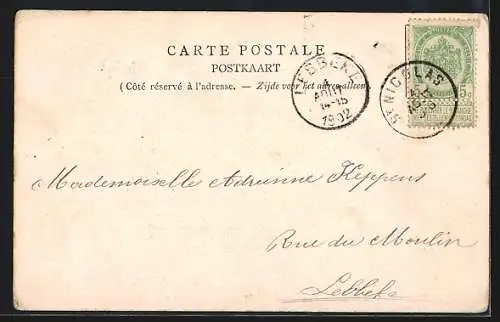 CARTE POSTALE
POSTKAART
(Côté réservé à l'adresse. — Zijde voor het adres alleen.)
LEBBEKE
4
AOUT
14-15
1902
ST NICOLAS
5
Mademoiselle Adrienne Keppens
Rue du Moulin
Lebbeke